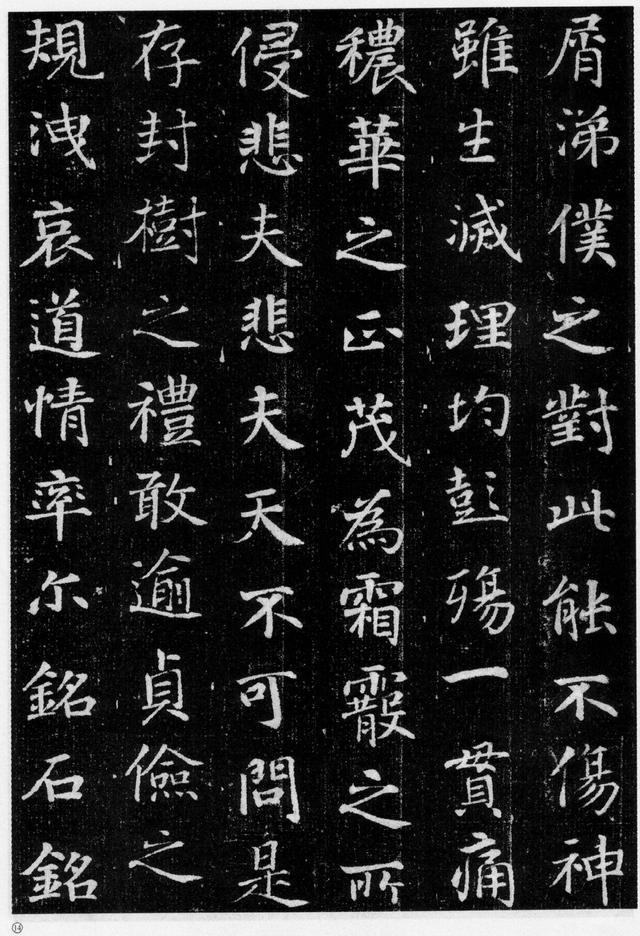 屑涕僕之對此能不傷神
雖生滅理均彭殤一貫痛
穠華之正茂為霜霰之所
侵悲夫悲夫天不可問是
存封樹之禮敢逾貞儉之
規洩哀道情率尔銘石銘
⑭